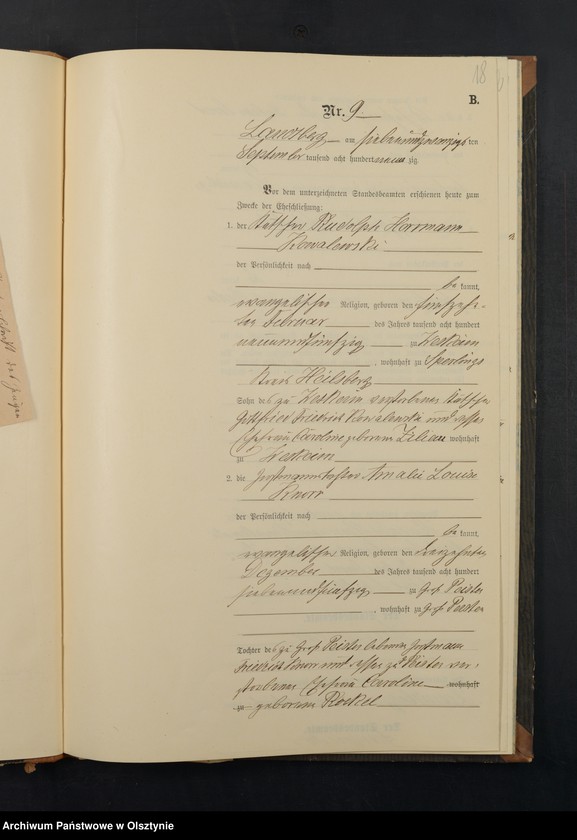 18
B.
Nr. 9
Landsberg am siebenundzwanzigs ten
September tausend acht hundert neun zig
Vor dem unterzeichneten Standesbeamten erschienen heute zum
Zwecke der Eheschließung:
1. der Rudolph Hermann
Kowalewski
der Persönlichkeit nach
be kannt,
evangelischer Religion, geboren den fünfzehn-
ten Februar des Jahres tausend acht hundert
neunundfünfzig zu Worlaim
, wohnhaft zu Sperlings
Kreis Heilsberg
Sohn des zu verstorbenen
Gottfried Friedrich Kowalewski und dessen
Ehefrau Caroline geborenen Zilian wohnhaft
zu
2. die Amalie Louise
Knorr
der Persönlichkeit nach
be kannt,
evangelischer Religion, geboren den
Dezember des Jahres tausend acht hundert
siebenundfünfzig zu Groß Peisten
, wohnhaft zu Groß Peisten
Tochter des zu Groß Peisten lebenden
Friedrich Knorr und dessen zu Peisten ver-
storbenen Ehefrau Caroline wohnhaft
zu geborenen Röckel
Archiwum Państwowe w Olsztynie